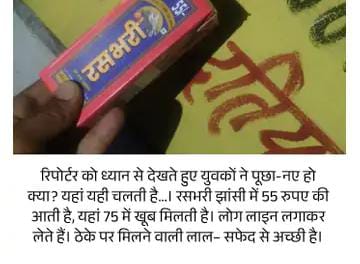 55/-
रसभरी
रिपोर्टर को ध्यान से देखते हुए युवकों ने पूछा-नए हो
क्या? यहां यही चलती है...। रसभरी झांसी में 55 रुपए की
आती है, यहां 75 में खूब मिलती है। लोग लाइन लगाकर
लेते हैं। ठेके पर मिलने वाली लाल– सफेद से अच्छी है।